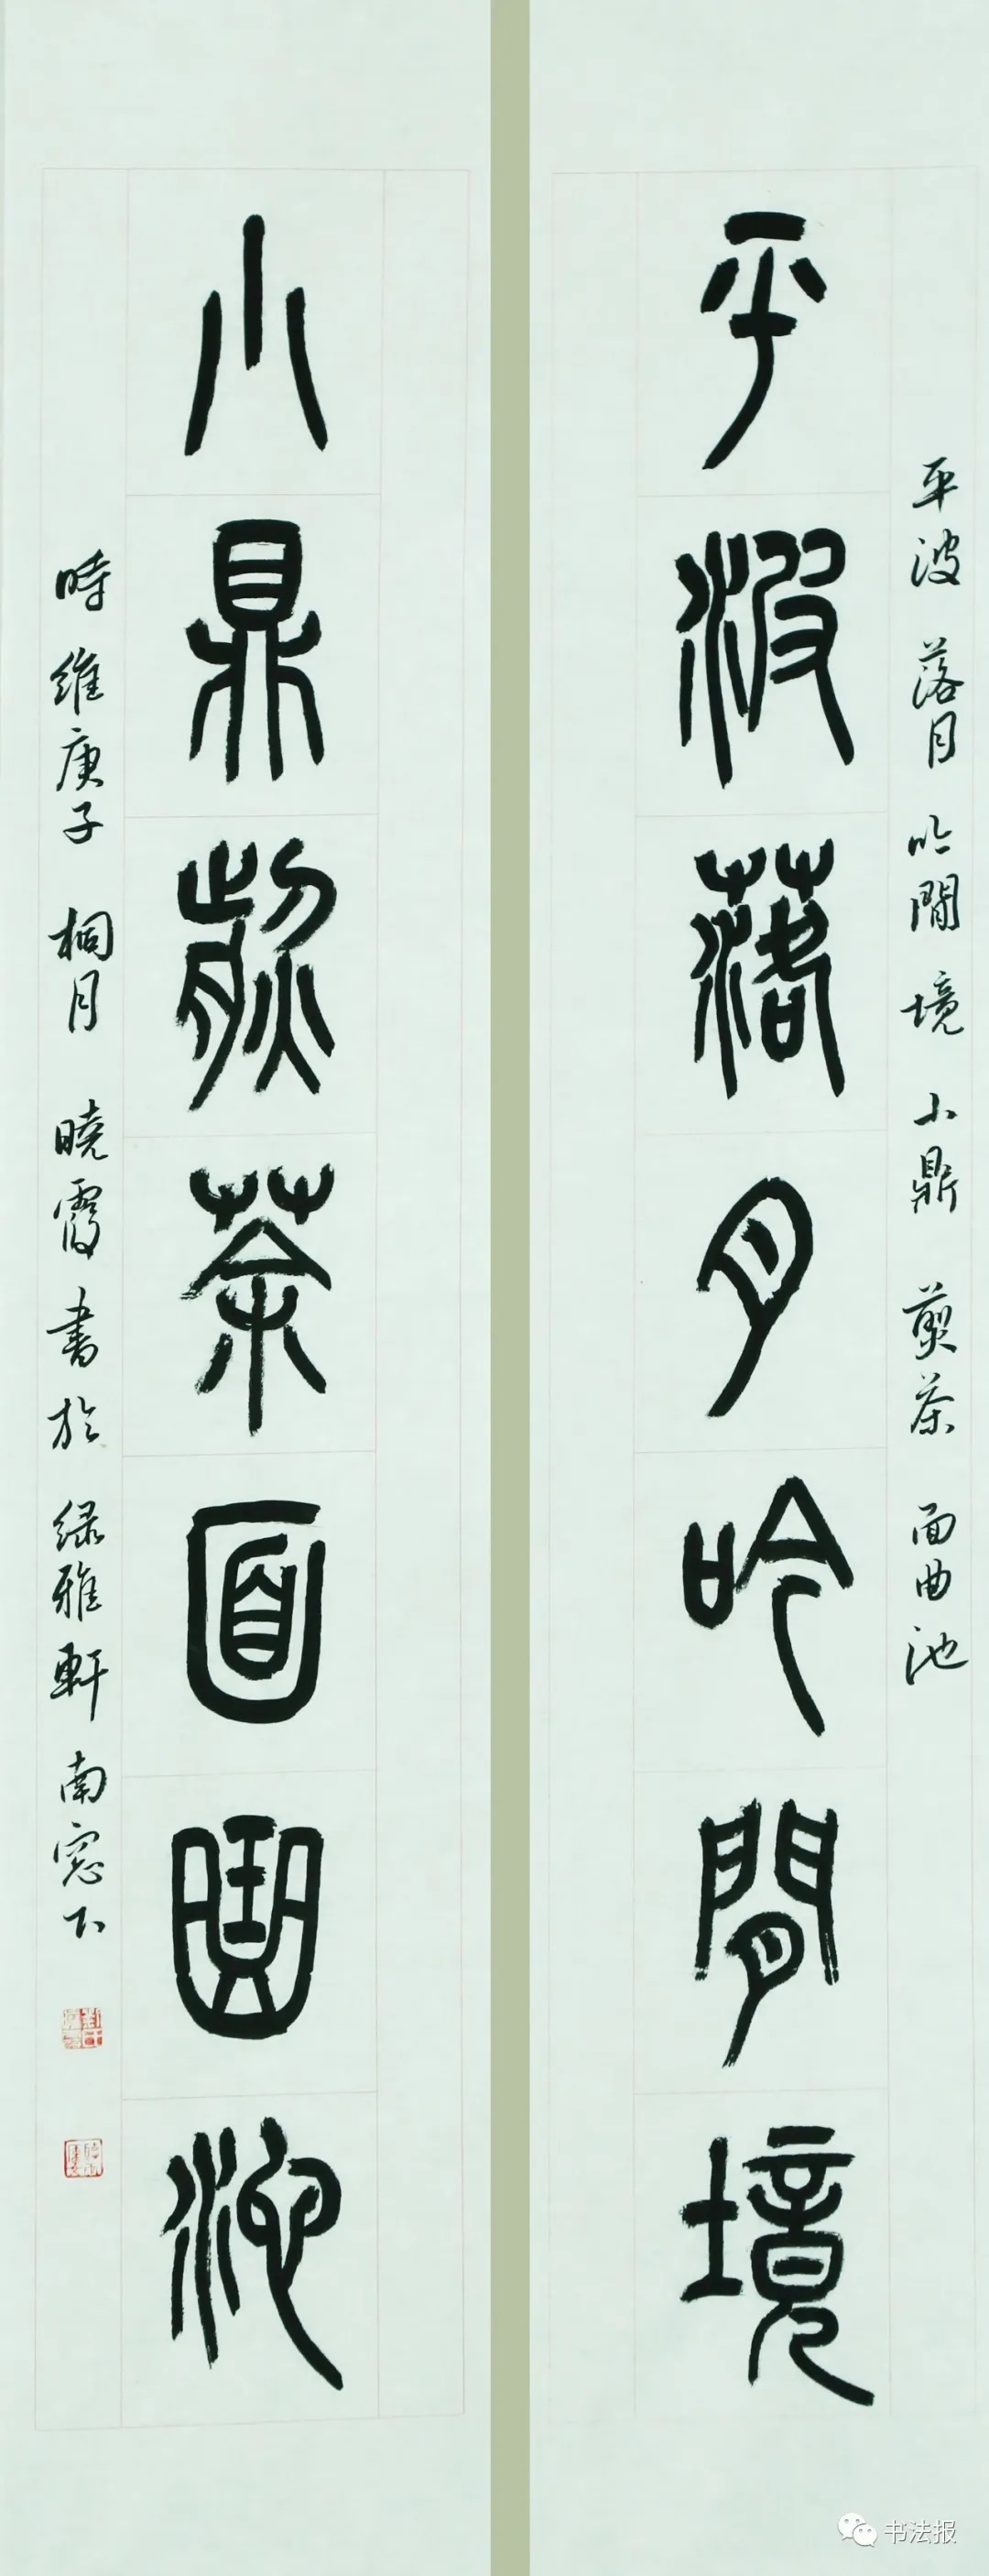 平波落月吟閒境
平波落月吟閒境小鼎煎茶面曲池
小鼎煎茶面曲池
時維庚子桐月曉霞書於緑雅軒南窓下
书法报